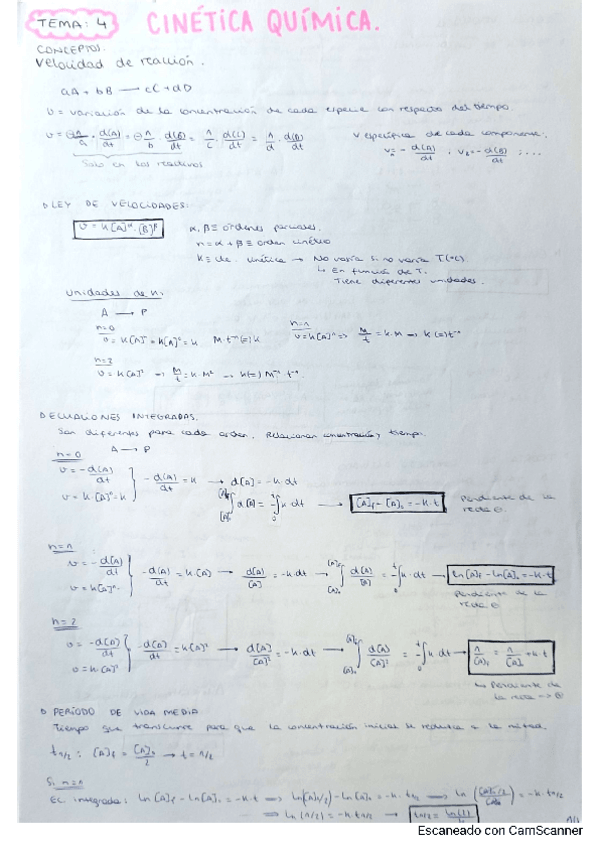 TEMA: 4 CINÉTICA QUÍMICA.
CONCEPTOS.
Velocidad de reacción.
aA + bB → cC + dD
v = variación de la concentración de cada especie con respecto del tiempo.
v = ⊖1/a · d(A)/dt = ⊖1/b d(B)/dt = 1/c · d(C)/dt = 1/d · d(D)/dt
v específica de cada componente.
Vₐ = -d(A)/dt ; V_b = -d(B)/dt ; ...
Solo en los reactivos
LEY DE VELOCIDADES:
v = k[A]^α · [B]^β
α, β ≡ órdenes parciales.
n = α + β ≡ orden cinético
k ≡ cte. cinética → No varía si no varía T(ºC).
↳ En función de T.
Tiene diferentes unidades.
Unidades de k:
A → P
n=0
v = k[A]ⁿ = k[A]⁰ = k M·t⁻¹(=)k
n=1
v = k[A]¹ => M/t = k·M → k(=)t⁻¹
n=2
v = k[A]² → M/t = k·M² → k(=) M⁻¹ t⁻¹.
ECUACIONES INTEGRADAS.
Son diferentes para cada orden. Relacionan concentración y tiempo.
A → P
n=0
v = -d(A)/dt
v = k·[A]⁰ = k
-d(A)/dt = k → d[A] = -k·dt
∫ d[A] = -∫ k·dt → [A]f - [A]₀ = -k·t
Pendiente de la recta ⊖.
n=1
v = -d[A]/dt
v = k[A]¹
-d(A)/dt = k·[A] → d[A]/[A] = -k·dt → ∫ d[A]/[A] = -∫ k·dt → ln[A]f - ln[A]₀ = -k·t
Pendiente de la recta ⊖
n=2
v = -d[A]/dt
v = k·[A]²
-d[A]/dt = k[A]² → d[A]/[A]² = -k·dt → ∫ d[A]/[A]² = -∫ k·dt → 1/[A]f = 1/[A]₀ + k·t
↳ Pendiente de la recta → ⊕
PERÍODO DE VIDA MEDIA
Tiempo que transcurre para que la concentración inicial se reduzca a la mitad.
t₁/₂ : [A]f = [A]₀/2 → t = 1/2
Si n=1
Ec. integrada: ln[A]f - ln[A]₀ = -k·t → ln([A]₀/2) - ln[A]₀ = -k·t₁/₂ → ln([A]₀/2 / [A]₀) = -k·t₁/₂
→ ln(1/2) = -k·t₁/₂ →
Escaneado con CamScanner